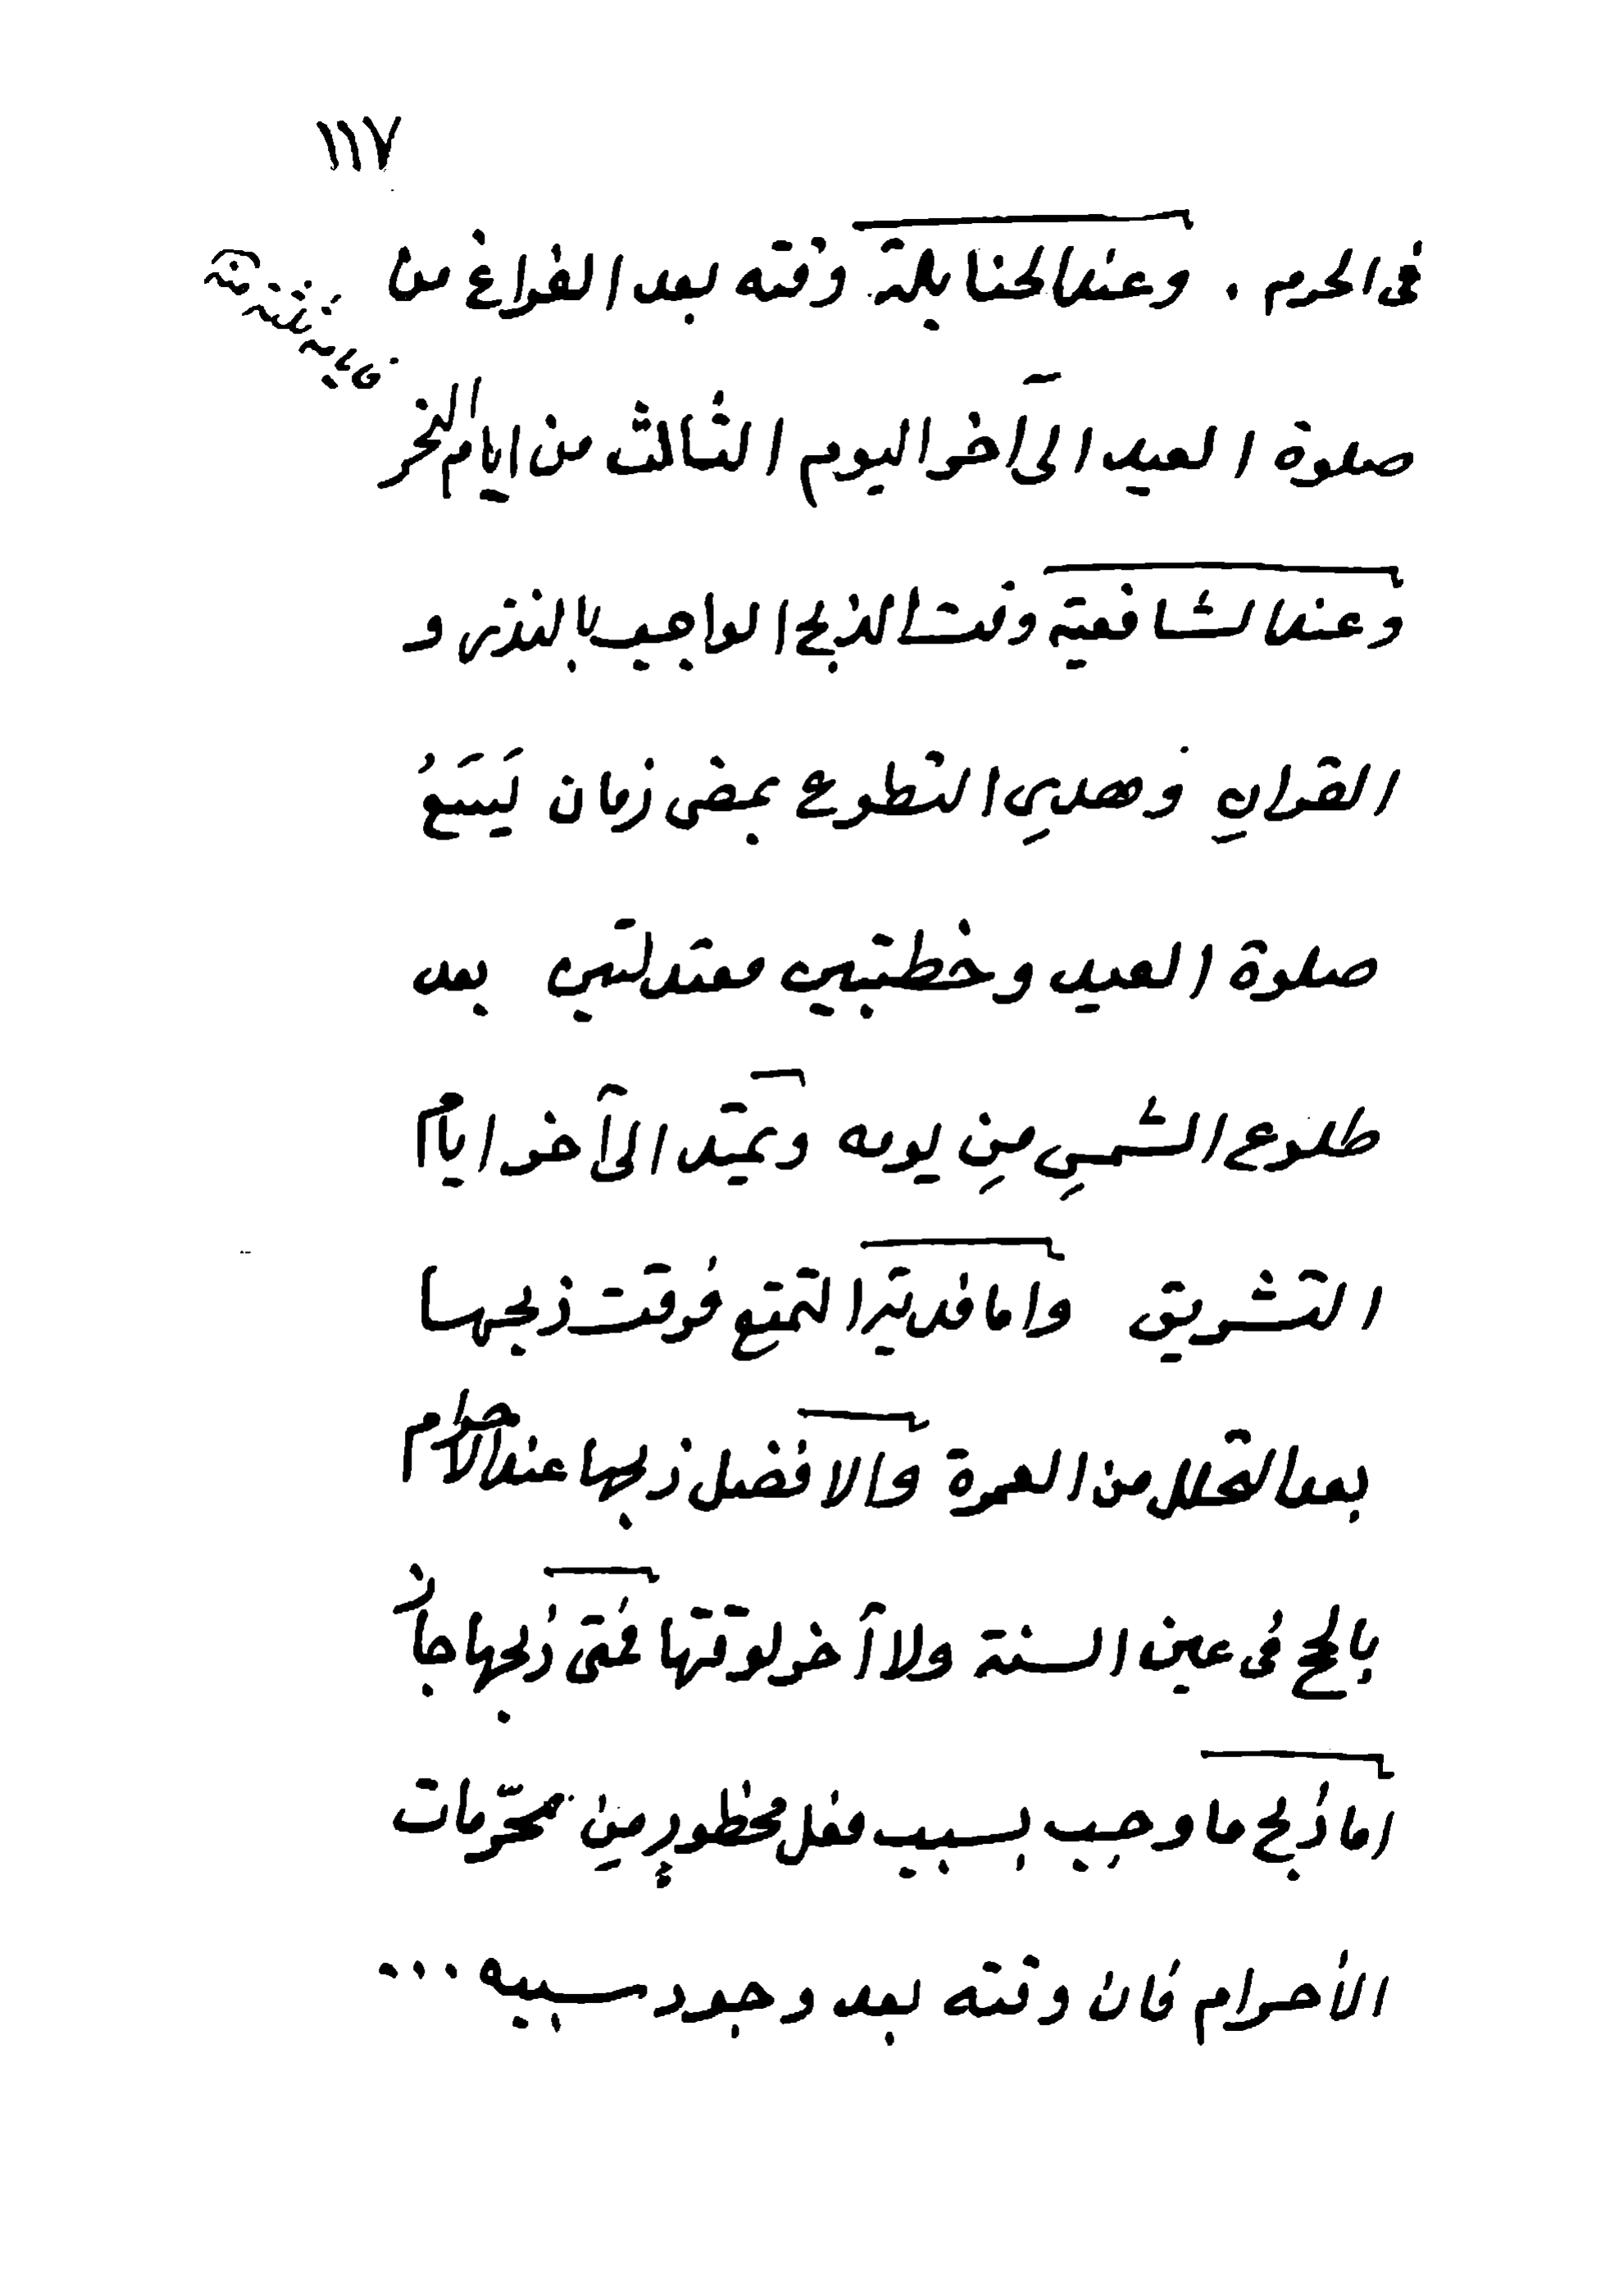 ١١٧
فى الحرم . وعند الحنابلة وقته بعد الفراغ من
صلوة العيد الى آخر اليوم الثالث من ايام النحر
وعند الشافعية وقت الذبح الواجب بالنذر و
القران وهدي التطوع بمضى زمان يَسَعُ
صلوة العيد وخطبتين معتدلتين بعد
طلوع الشمسِ مِن يومه ويمتد الى آخر ايام
التشريق واما فدية التمتع فوقت ذبحها
بعد التحلل من العمرة والافضل ذبحها عند الاحرام
بالحج فى عين السنة ولا آخر لوقتها فمتى ذبحها جاز
اما ذبح ما وجب بسبب فعل محظورٍ مِن محرّمات
الأحرام فان وقته بعد وجود سببه ...